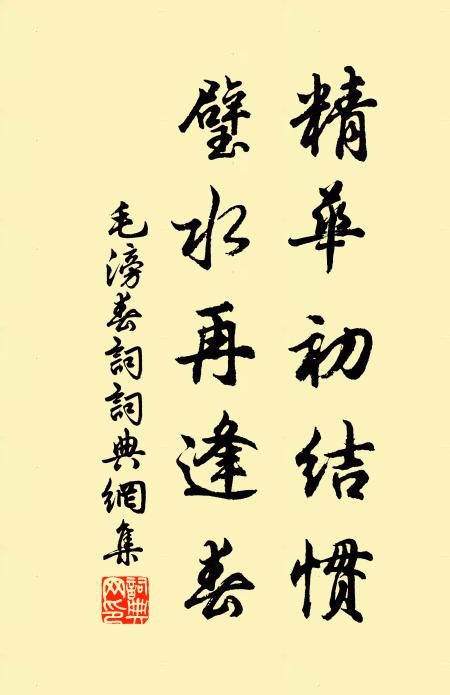 精華初結慣
璧水再逢春
毛滂春詞詞典網集
詞典
网印